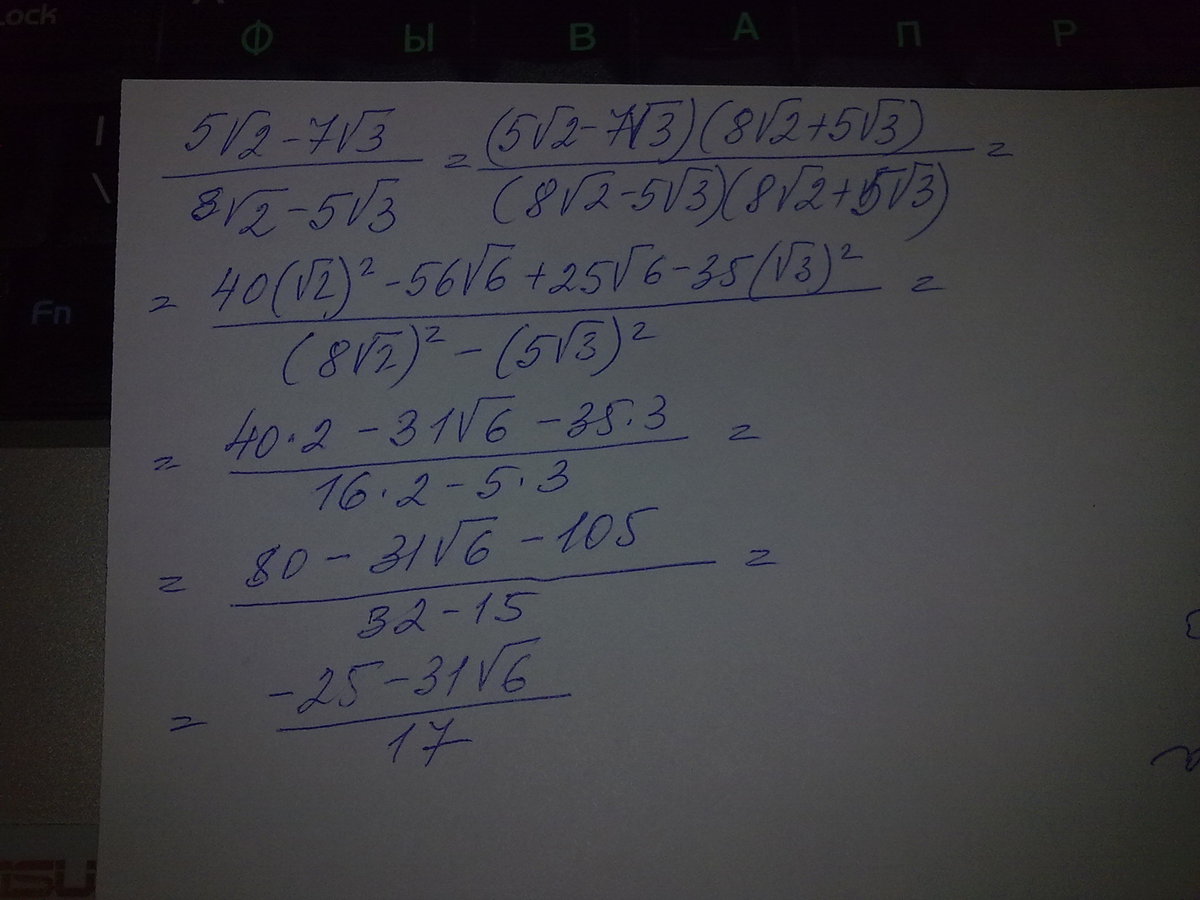 Lock
Ф Ы В А П Р
\
Fn
(5√2-7√3)/(8√2-5√3) = ((5√2-7√3)(8√2+5√3))/((8√2-5√3)(8√2+5√3)) =
= (40(√2)²-56√6+25√6-35(√3)²)/((8√2)²-(5√3)²) =
= (40·2-31√6-35·3)/(16·2-5·3) =
= (80-31√6-105)/(32-15) =
= (-25-31√6)/17